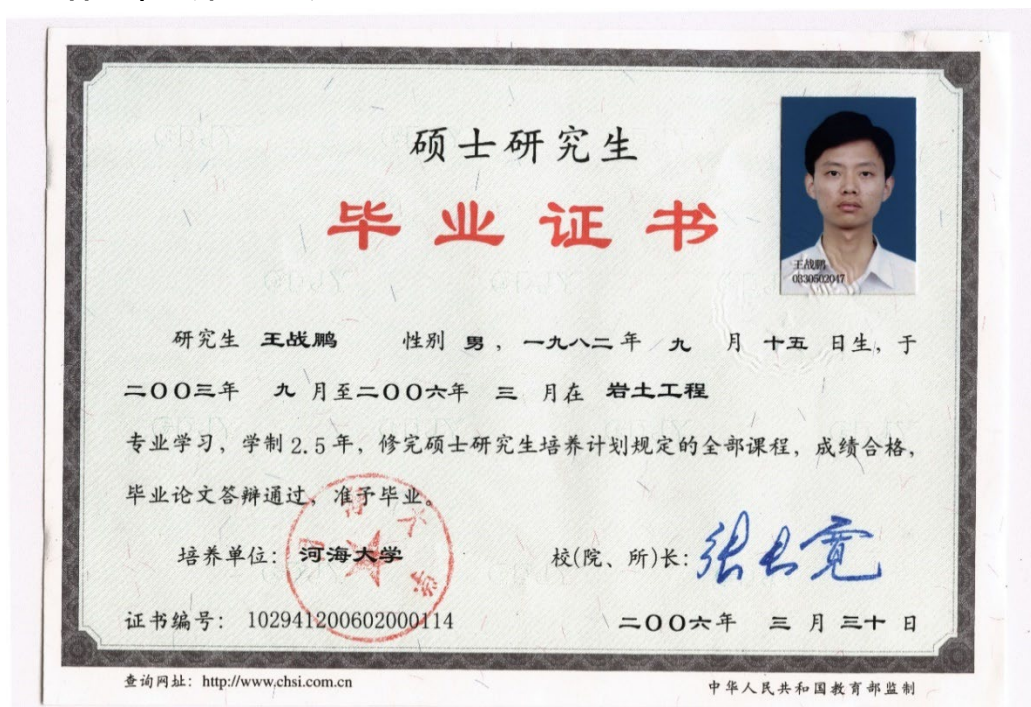 硕士研究生
毕业证书
王战鹏
0330502047
研究生 王战鹏 性别 男，一九八二年 九 月 十五 日生，于
二〇〇三年 九 月至二〇〇六年 三 月在 岩土工程
专业学习，学制2.5年，修完硕士研究生培养计划规定的全部课程，成绩合格，
毕业论文答辩通过，准予毕业。
培养单位：河海大学
校(院、所)长：张长宽
证书编号：102941200602000114
二〇〇六年 三 月 三十 日
查询网址：http://www.chsi.com.cn
中华人民共和国教育部监制